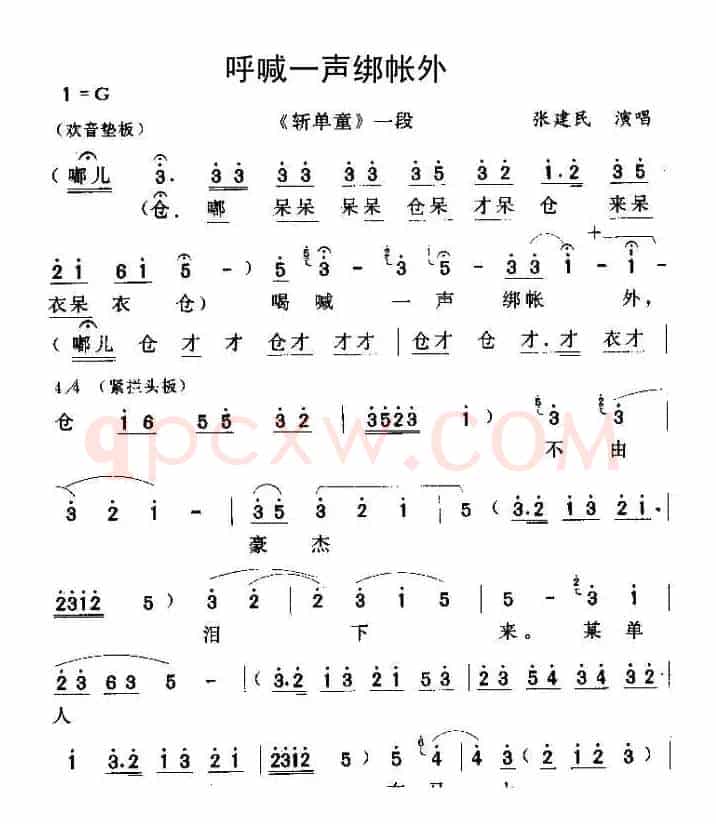 呼喊一声绑帐外
1=G
(欢音垫板) 《斩单童》一段 张建民 演唱
(嘟儿 3. 3 3 3 3 3 3 3 5 3 2 1.2 3 5
(仓. 嘟 呆呆 呆呆 仓呆 才呆 仓 来呆
2 1 6 1 5 -) 5 3 - 3 5 - 3 3 1 - 1 -
衣呆 衣 仓) 喝喊 一声 绑帐 外,
(嘟儿 仓 才 才 仓才 才才 | 仓才 仓 才.才 衣才 |
4/4 (紧拦头板)
仓 1 6 5 5 3 2 | 3523 1) 3 3
不由
3 2 1 - | 3 5 3 2 1 | 5 (3.2 1 3 2 1
豪 杰
2312 5) 3 2 | 2 3 1 5 | 5 - 3 1
泪 下 来。某单
2 3 6 3 5 - | (3.2 1 3 2 1 5 3 | 2 3 5 4 3 4 3 2
人
1 3.2 1 3 2 1 | 2312 5) 5 4 | 4 3 (2 1 2 3
qpcxw.COM